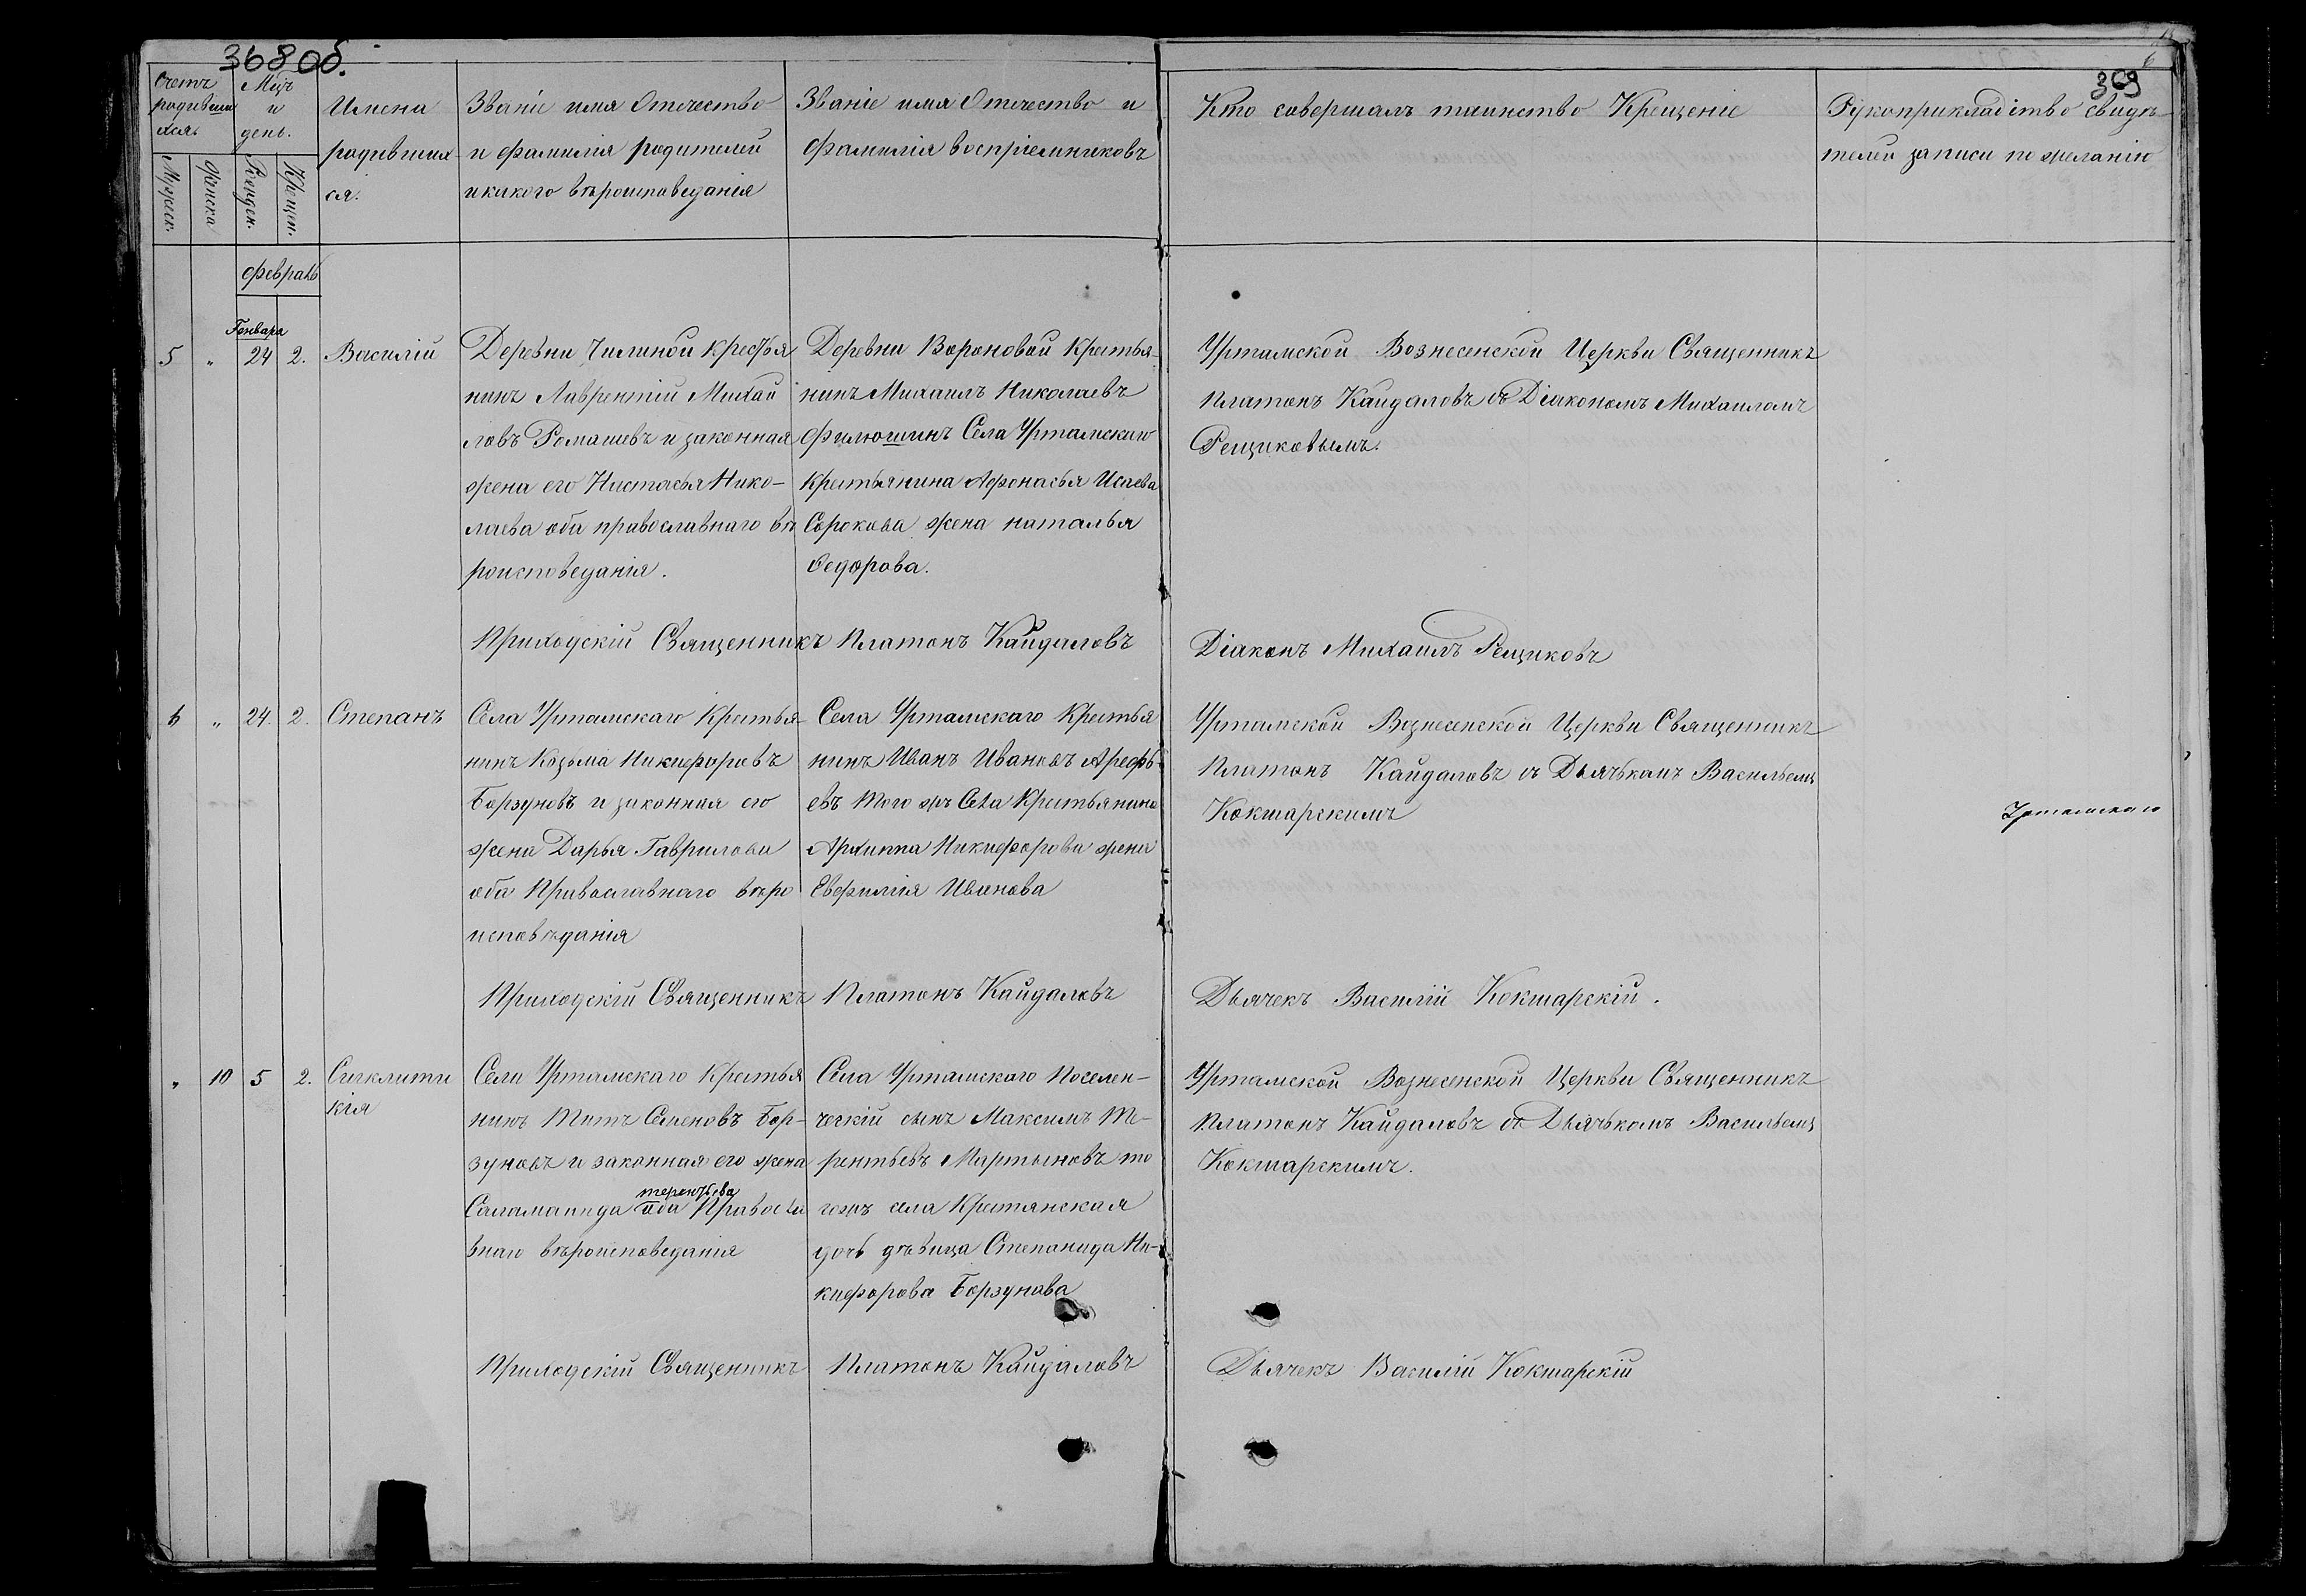 368 об.
369
6
Счетъ родившихся.
Мужеск.
Женска
Мцъ и день.
Рожден.
Крещен.
Имена
родивших
ся.
Званіе имя Отечество
и фамилія родителей
и какого вѣроисповеданія
Званіе имя Отечество и
фамилія воспріемниковъ
Кто совершалъ таинство Крещеніе
Рукоприкладство свидѣ-
телей записи по желанію
февраль
Генваря
5 " 24 2. Василій
Деревни Чилиной крестья
нинъ Лаврентій Михай
ловъ Ромашевъ и законная
жена его Настасья Нико-
лаева оба православнаго вѣ
роисповеданія.
Деревни Вороновой Крестья-
нинъ Михаилъ Николаевъ
Филюшинъ Села Уртамскаго
Крестьянина Афонасья Исаева
Сорокова жена наталья
Ѳедорова.
Уртамской Вознесенской Церкви Священникъ
Платонъ Кайдаловъ съ Діакономъ Михаиломъ
Рещиковымъ.
Приходскій Священникъ Платонъ Кайдаловъ
Діаконъ Михаилъ Рещиковъ
6 " 24. 2. Степанъ
Села Уртамскаго Крестья-
нинъ Козьма Никифоровъ
Борзуновъ и законная его
жена Дарья Гаврилова
оба Православнаго вѣро
исповѣданія
Села Уртамскаго Крестья
нинъ Иванъ Ивановъ Арефь-
евъ того жъ Села Крестьянина
Архиппа Никифорова жена
Евфимія Иванова
Уртамской Вознесенской Церкви Священникъ
Платонъ Кайдаловъ съ Дьячькомъ Васильемъ
Кокшарскимъ
Уртамскаго
Приходскій Священникъ Платонъ Кайдаловъ
Дьячекъ Василій Кокшарскій.
" 10 5 2. Сигклити
кія
Села Уртамскаго Крестья
нинъ Титъ Семеновъ Бор-
зуновъ и законная его жена
терентьева
Саламанида оба Правосла
внаго вѣроисповеданія
Села Уртамскаго Поселен-
ческій сынъ Максимъ Те-
рентьевъ Мартыновъ то
гожъ села Крестянская
дочь дѣвица Степанида Ни-
кифорова Борзунова
Уртамской Вознесенской Церкви Священникъ
Платонъ Кайдаловъ съ Дьячькомъ Васильемъ
Кокшарскимъ.
Приходскій Священникъ Платонъ Кайдаловъ
Дьячекъ Василій Кокшарскій